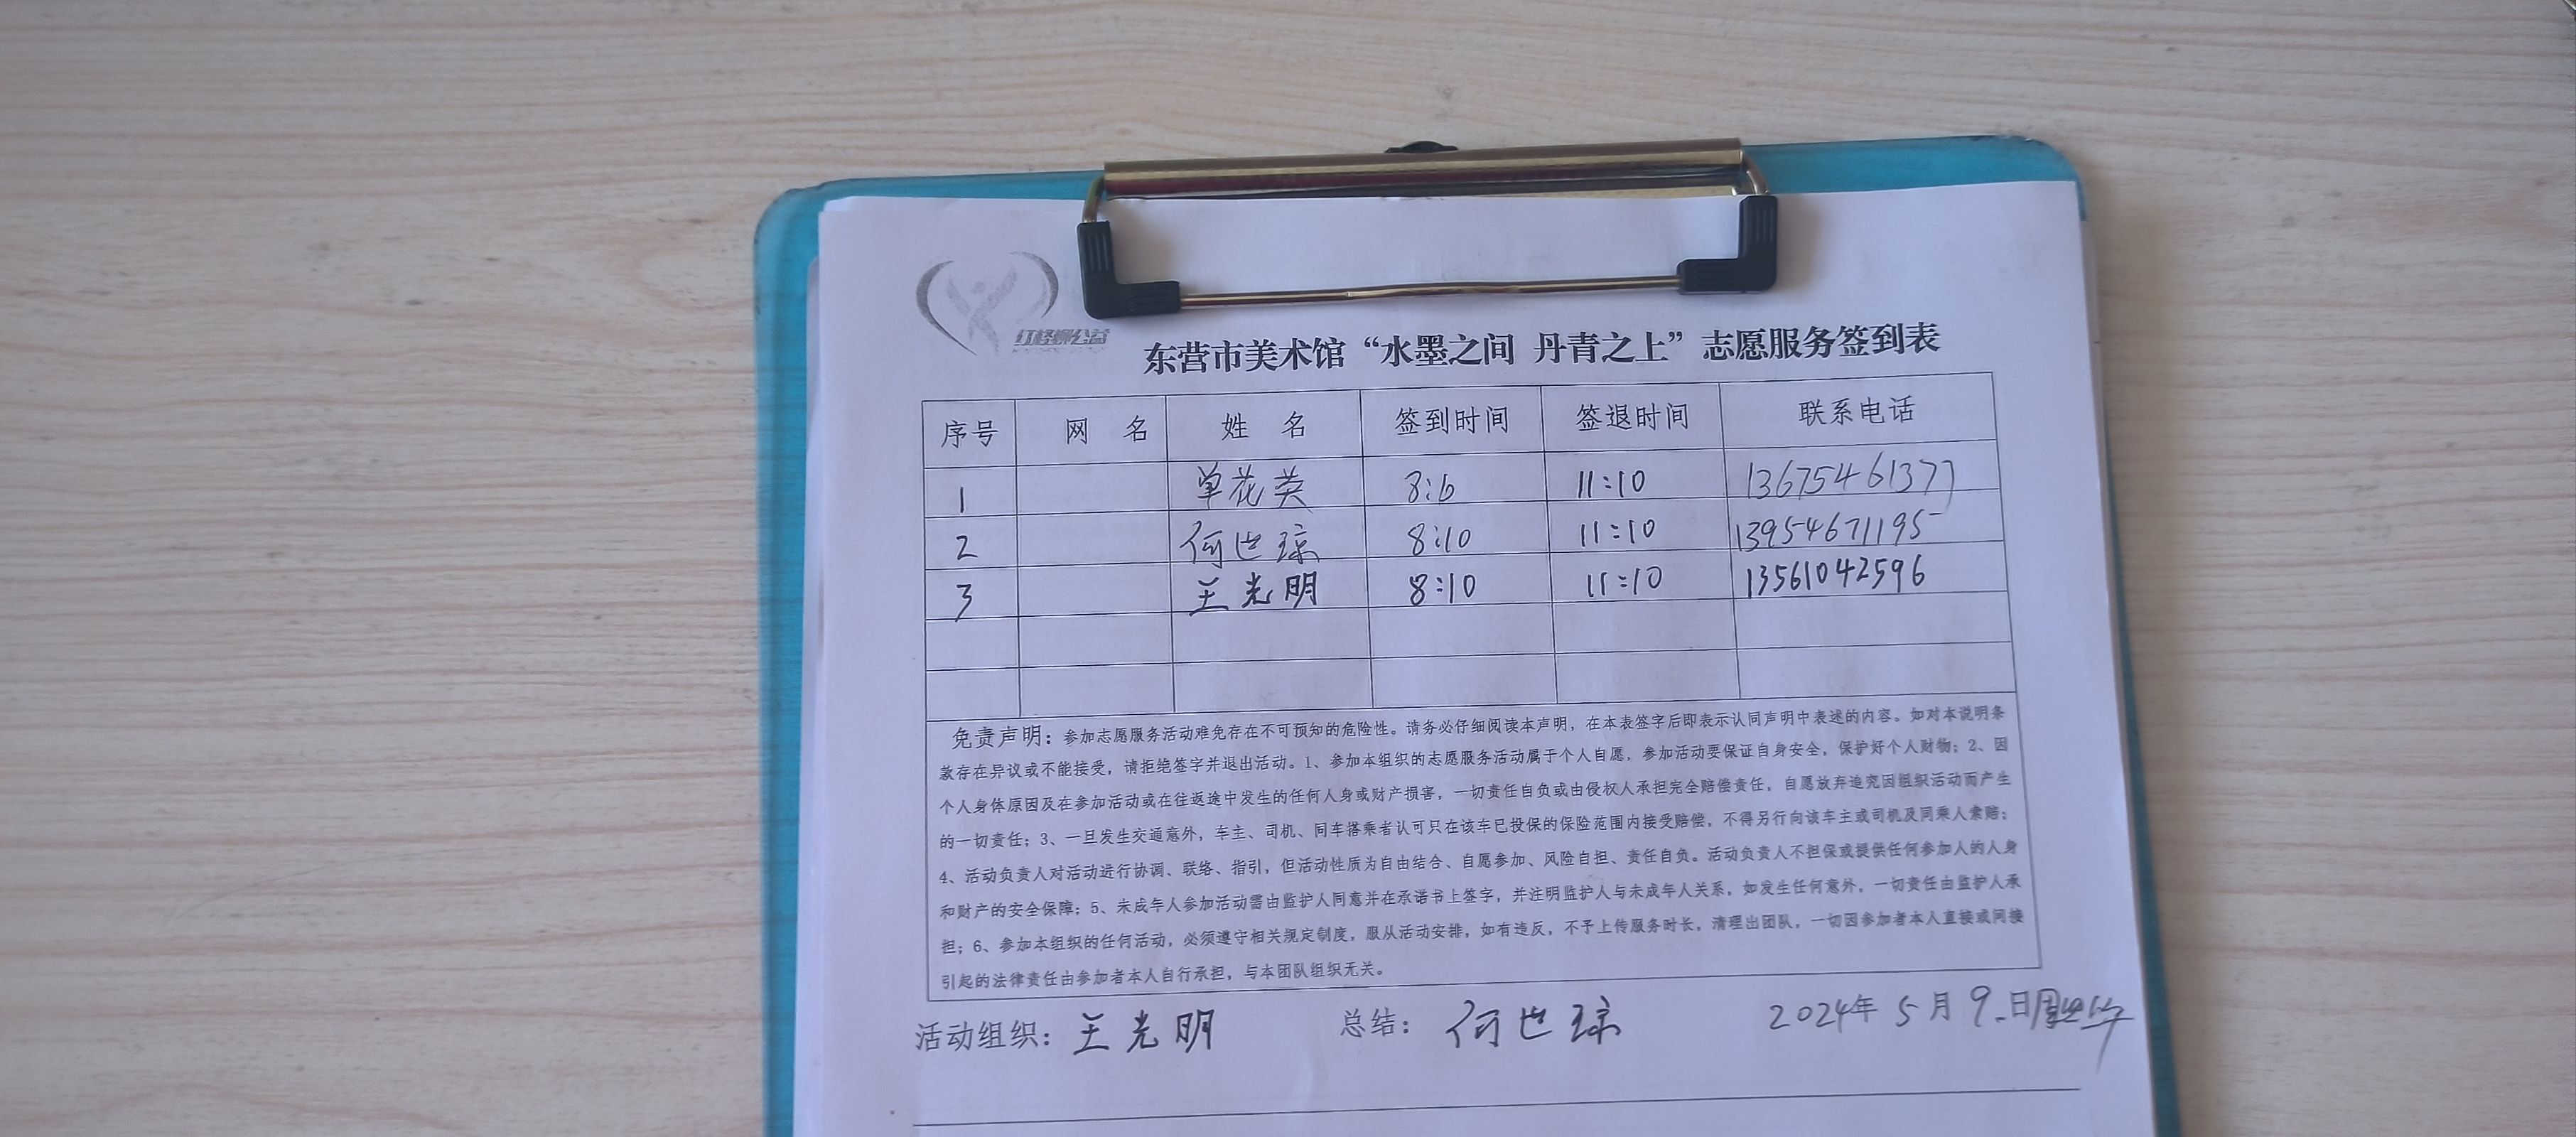 红柽柳公益
东营市美术馆“水墨之间 丹青之上”志愿服务签到表
序号 网 名 姓 名 签到时间 签退时间 联系电话
1 单花英 8:6 11:10 13675461377
2 何世琼 8:10 11:10 13954671195
3 王光明 8:10 11:10 13561042596
免责声明：参加志愿服务活动难免存在不可预知的危险性。请务必仔细阅读本声明，在本表签字后即表示认同声明中表述的内容。如对本说明条
款存在异议或不能接受，请拒绝签字并退出活动。1、参加本组织的志愿服务活动属于个人自愿，参加活动要保证自身安全，保护好个人财物；2、因
个人身体原因及在参加活动或在往返途中发生的任何人身或财产损害，一切责任自负或由侵权人承担完全赔偿责任，自愿放弃追究因组织活动而产生
的一切责任；3、一旦发生交通意外，车主、司机、同车搭乘者认可只在该车已投保的保险范围内接受赔偿，不得另行向该车主或司机及同乘人索赔；
4、活动负责人对活动进行协调、联络、指引，但活动性质为自由结合、自愿参加、风险自担、责任自负。活动负责人不担保或提供任何参加人的人身
和财产的安全保障；5、未成年人参加活动需由监护人同意并在承诺书上签字，并注明监护人与未成年人关系，如发生任何意外，一切责任由监护人承
担；6、参加本组织的任何活动，必须遵守相关规定制度，服从活动安排，如有违反，不予上传服务时长，清理出团队，一切因参加者本人直接或间接
引起的法律责任由参加者本人自行承担，与本团队组织无关。
活动组织：王光明 总结：何世琼 2024年 5月 9日